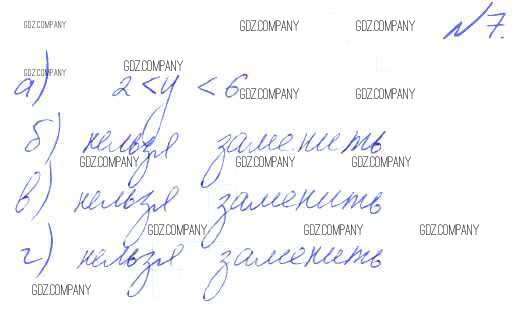 GDZ.COMPANY GDZ.COMPANY GDZ.COMPANY №7.
GDZ.COMPANY GDZ.COMPANY
а) 2 < y < 6
GDZ.COMPANY GDZ.COMPANY
б) нельзя заменить
GDZ.COMPANY GDZ.COMPANY GDZ.COMPANY
в) нельзя заменить
GDZ.COMPANY GDZ.COMPANY GDZ.COMPANY
г) нельзя заменить
GDZ.COMPANY